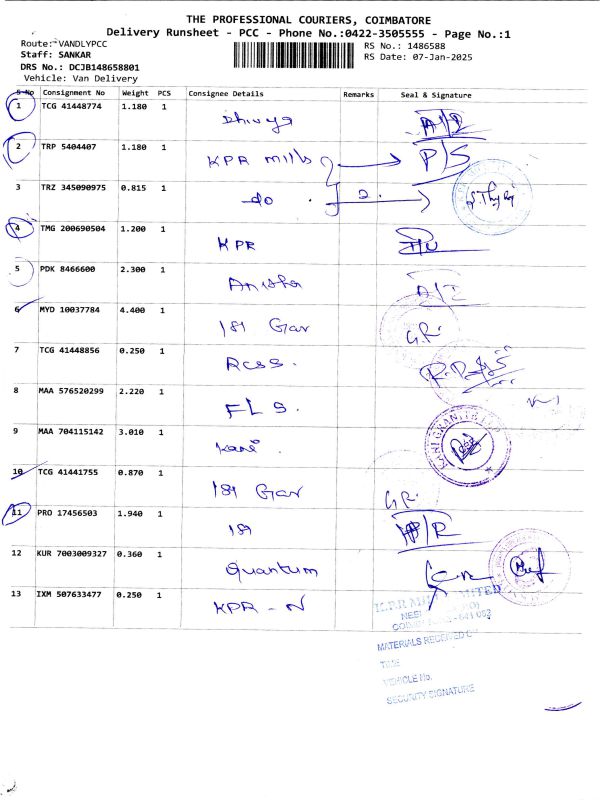 THE PROFESSIONAL COURIERS, COIMBATORE
Delivery Runsheet - PCC - Phone No.:0422-3505555 - Page No.:1
Route: VANDLYPCC
RS No.: 1486588
Staff: SANKAR
RS Date: 07-Jan-2025
DRS No.: DCJB148658801
Vehicle: Van Delivery
S No Consignment No Weight PCS Consignee Details Remarks Seal & Signature
1 TCG 41448774 1.180 1
2 TRP 5404407 1.180 1 KPR mills P/S
3 TRZ 345090975 0.815 1 do 2.
4 TMG 200690504 1.200 1 KPR
5 PDK 8466600 2.300 1 A/I
6 MYD 10037784 4.400 1 181 Gar G.R.
7 TCG 41448856 0.250 1 Rcss.
8 MAA 576520299 2.220 1 FLS.
9 MAA 704115142 3.010 1 Kani
10 TCG 41441755 0.870 1 181 Gar G.R.
11 PRO 17456503 1.940 1 181
12 KUR 7003009327 0.360 1 Quantum
13 IXM 507633477 0.250 1 KPR - N
MATERIALS RECEIVED
TIME
VEHICLE No.
SECURITY SIGNATURE